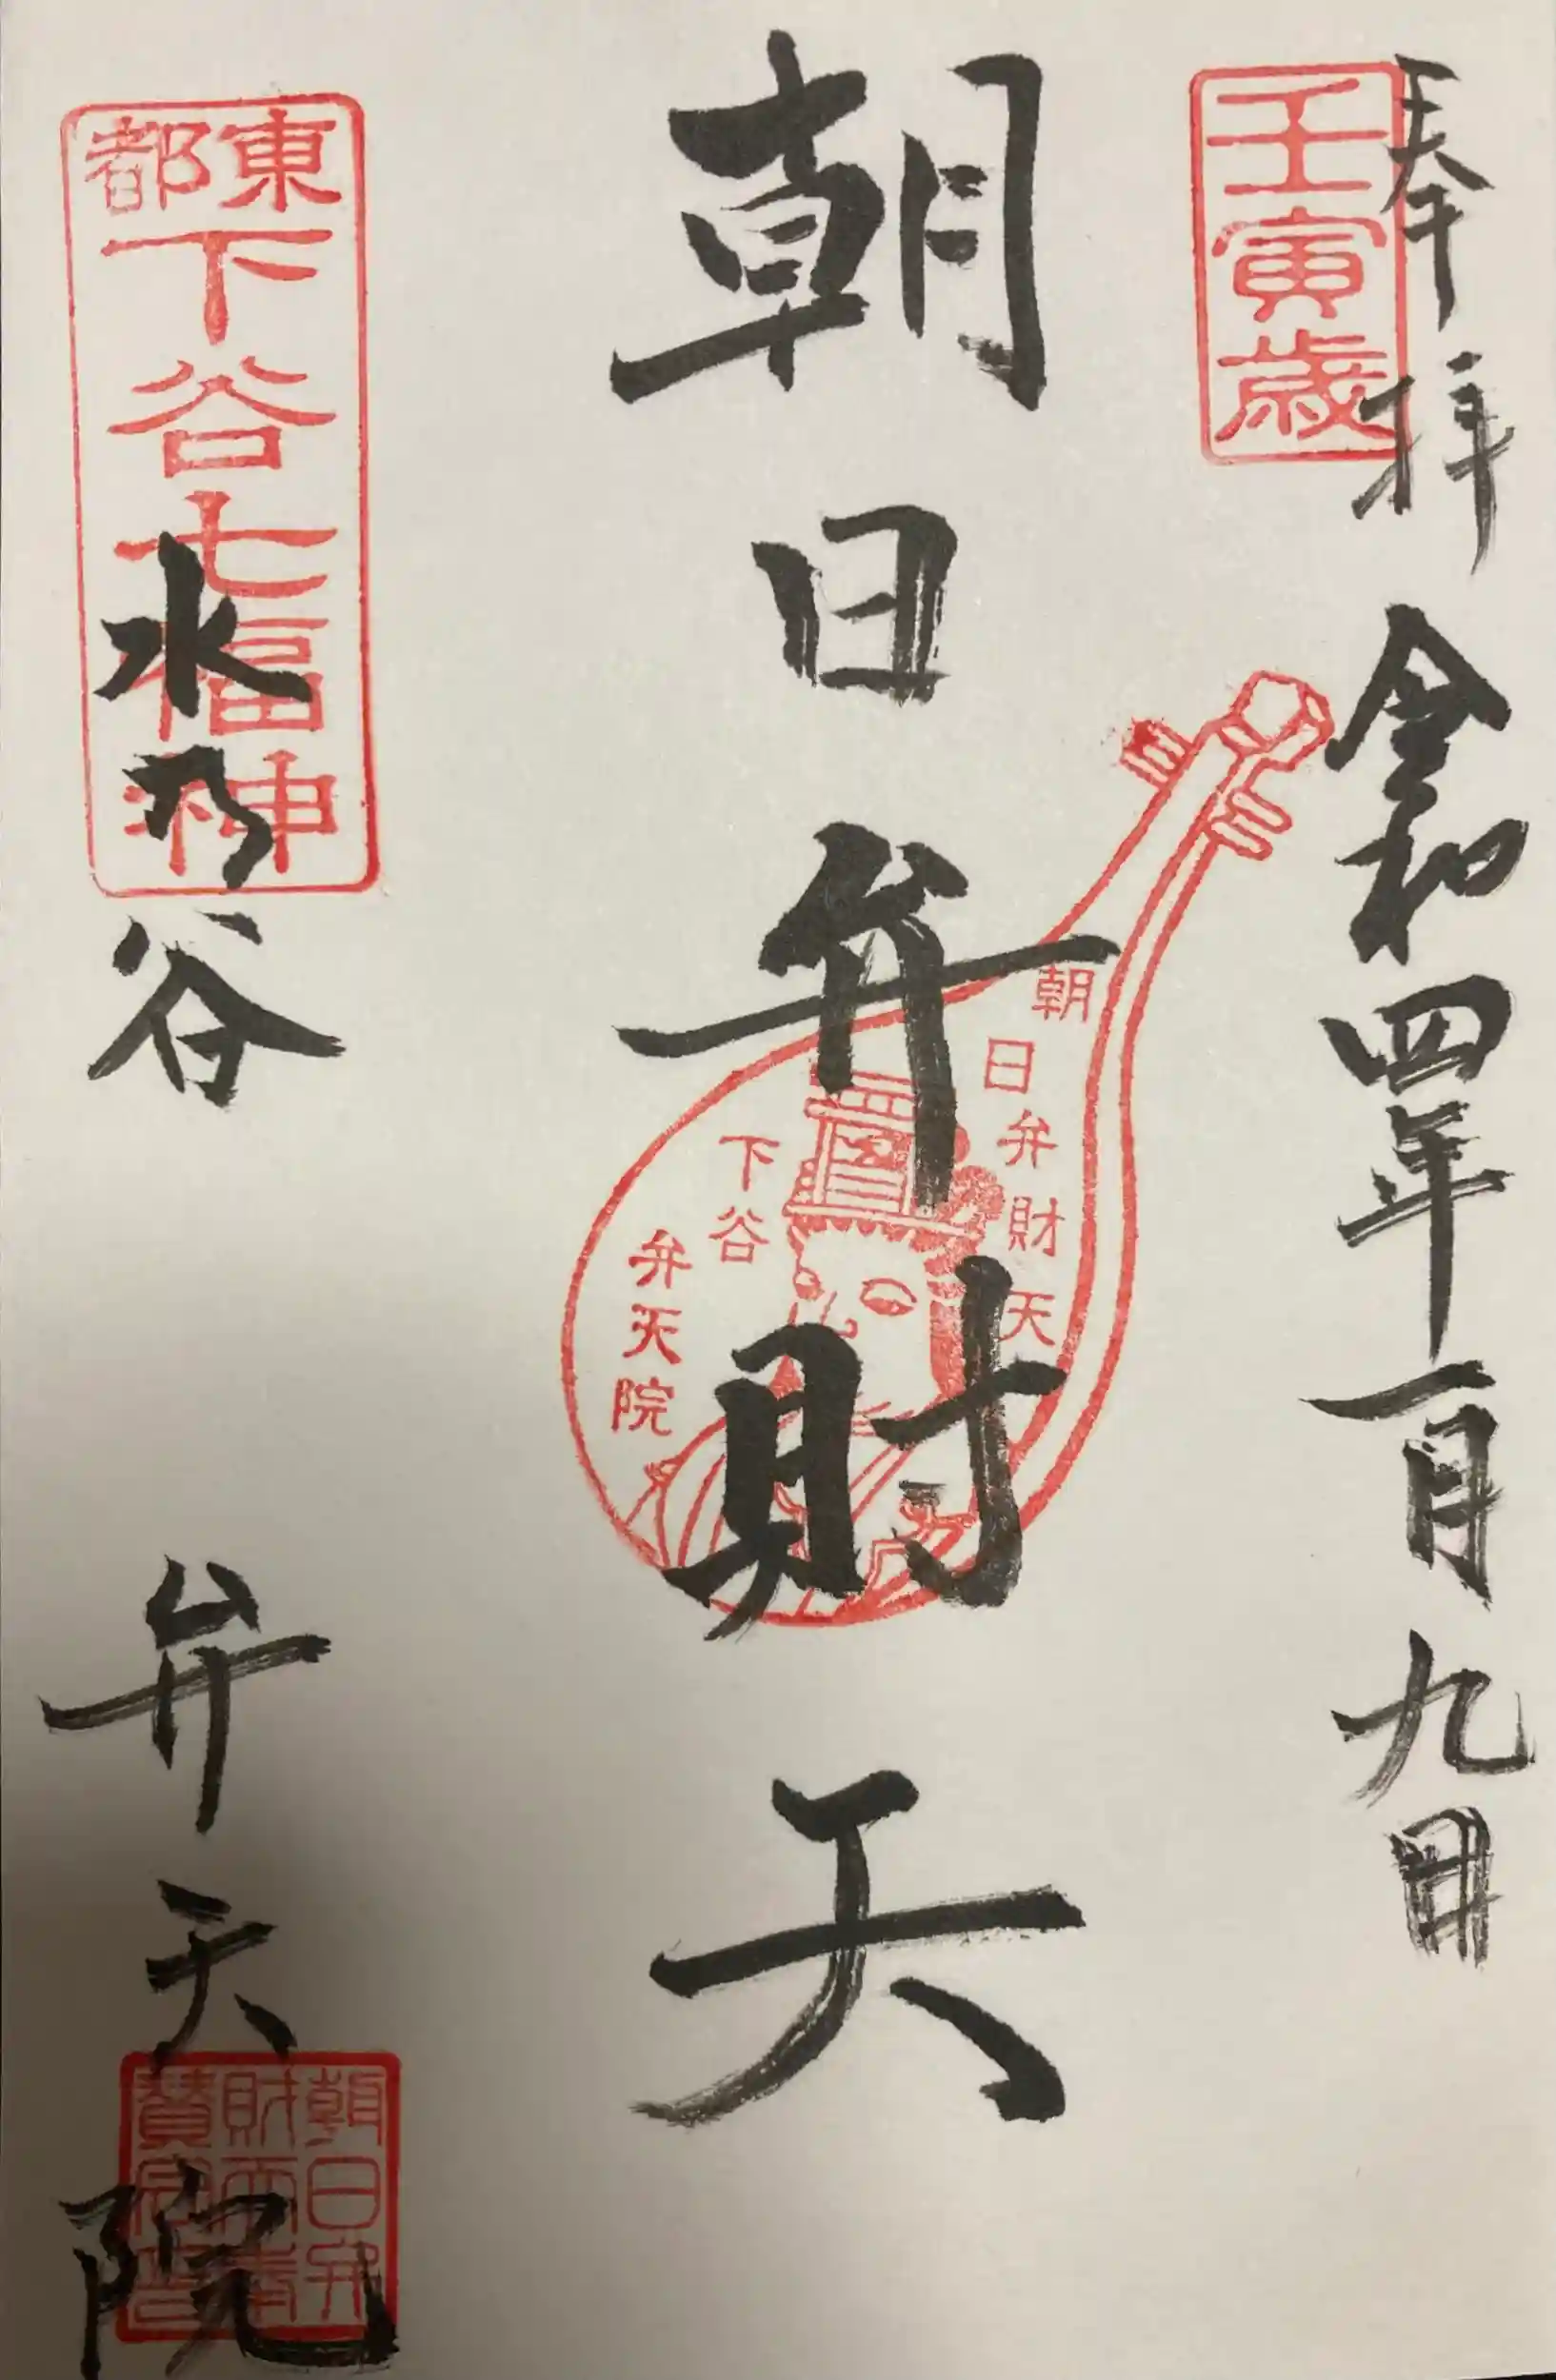 奉拝 令和四年一月九日
壬寅歳
朝日弁財天
朝日弁財天
下谷
弁天院
東都
下谷七福神
水乃谷 弁天院
朝日弁
財天奉
賛会